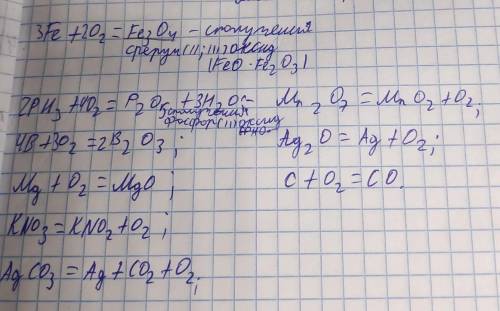 3Fe + 2O₂ = Fe₃O₄ - сполучення
ферум (II; III) оксид
(FeO · Fe₂O₃)
2PH₃ + 4O₂ = P₂O₅ + 3H₂O -
сполучення
фосфор
оксид
4B + 3O₂ = 2B₂O₃ ;
Mg + O₂ = MgO ;
KNO₃ = KNO₂ + O₂ ;
AgCO₃ = Ag + CO₂ + O₂ ;
Mn₂O₇ = MnO₂ + O₂ ;
Ag₂O = Ag + O₂ ;
C + O₂ = CO.